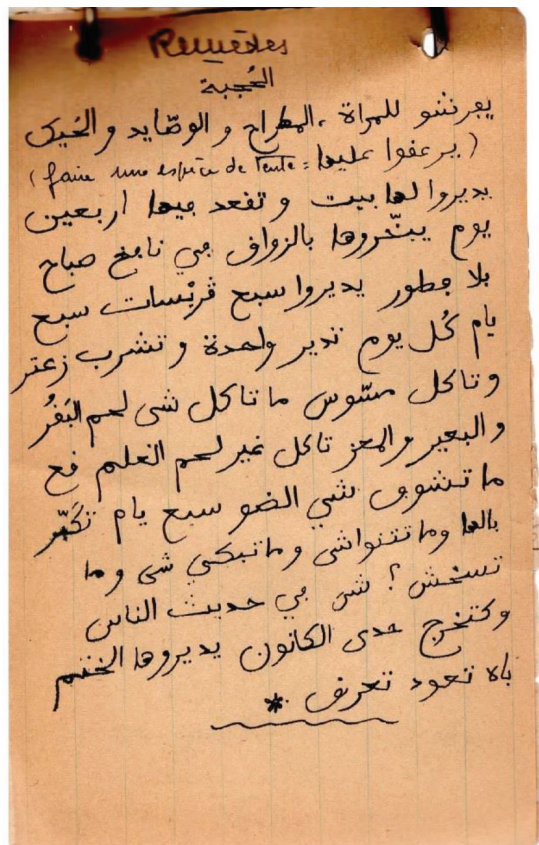 Remèdes
الحُجبة
يفرشو للمراة ، المطراح و الوصّايد و الحَيك
(يرعفوا عليها : faire une espèce de Tente)
يديروا لها بيت و تقعد فيها اربعين
يوم يبخّروها بالزواق في صباح
بلا فطور يديروا سبع ڨريسات سبع
يام كُل يوم تدير واحدة و تشرب زعتر
و تاكل مسّوس ما تاكل شي لحم البَقرُ
و البعير و المعز تاكل غير لحم الغلم
ما تشوف شي الضو سبع يام تكَبّر
بالها وما تتنواشى وما تبكي شي و ما
تسخش ؟ شي في حديث الناس
و كتخرج حدى الكانون يديروها الختم
باه تعود تعرف *